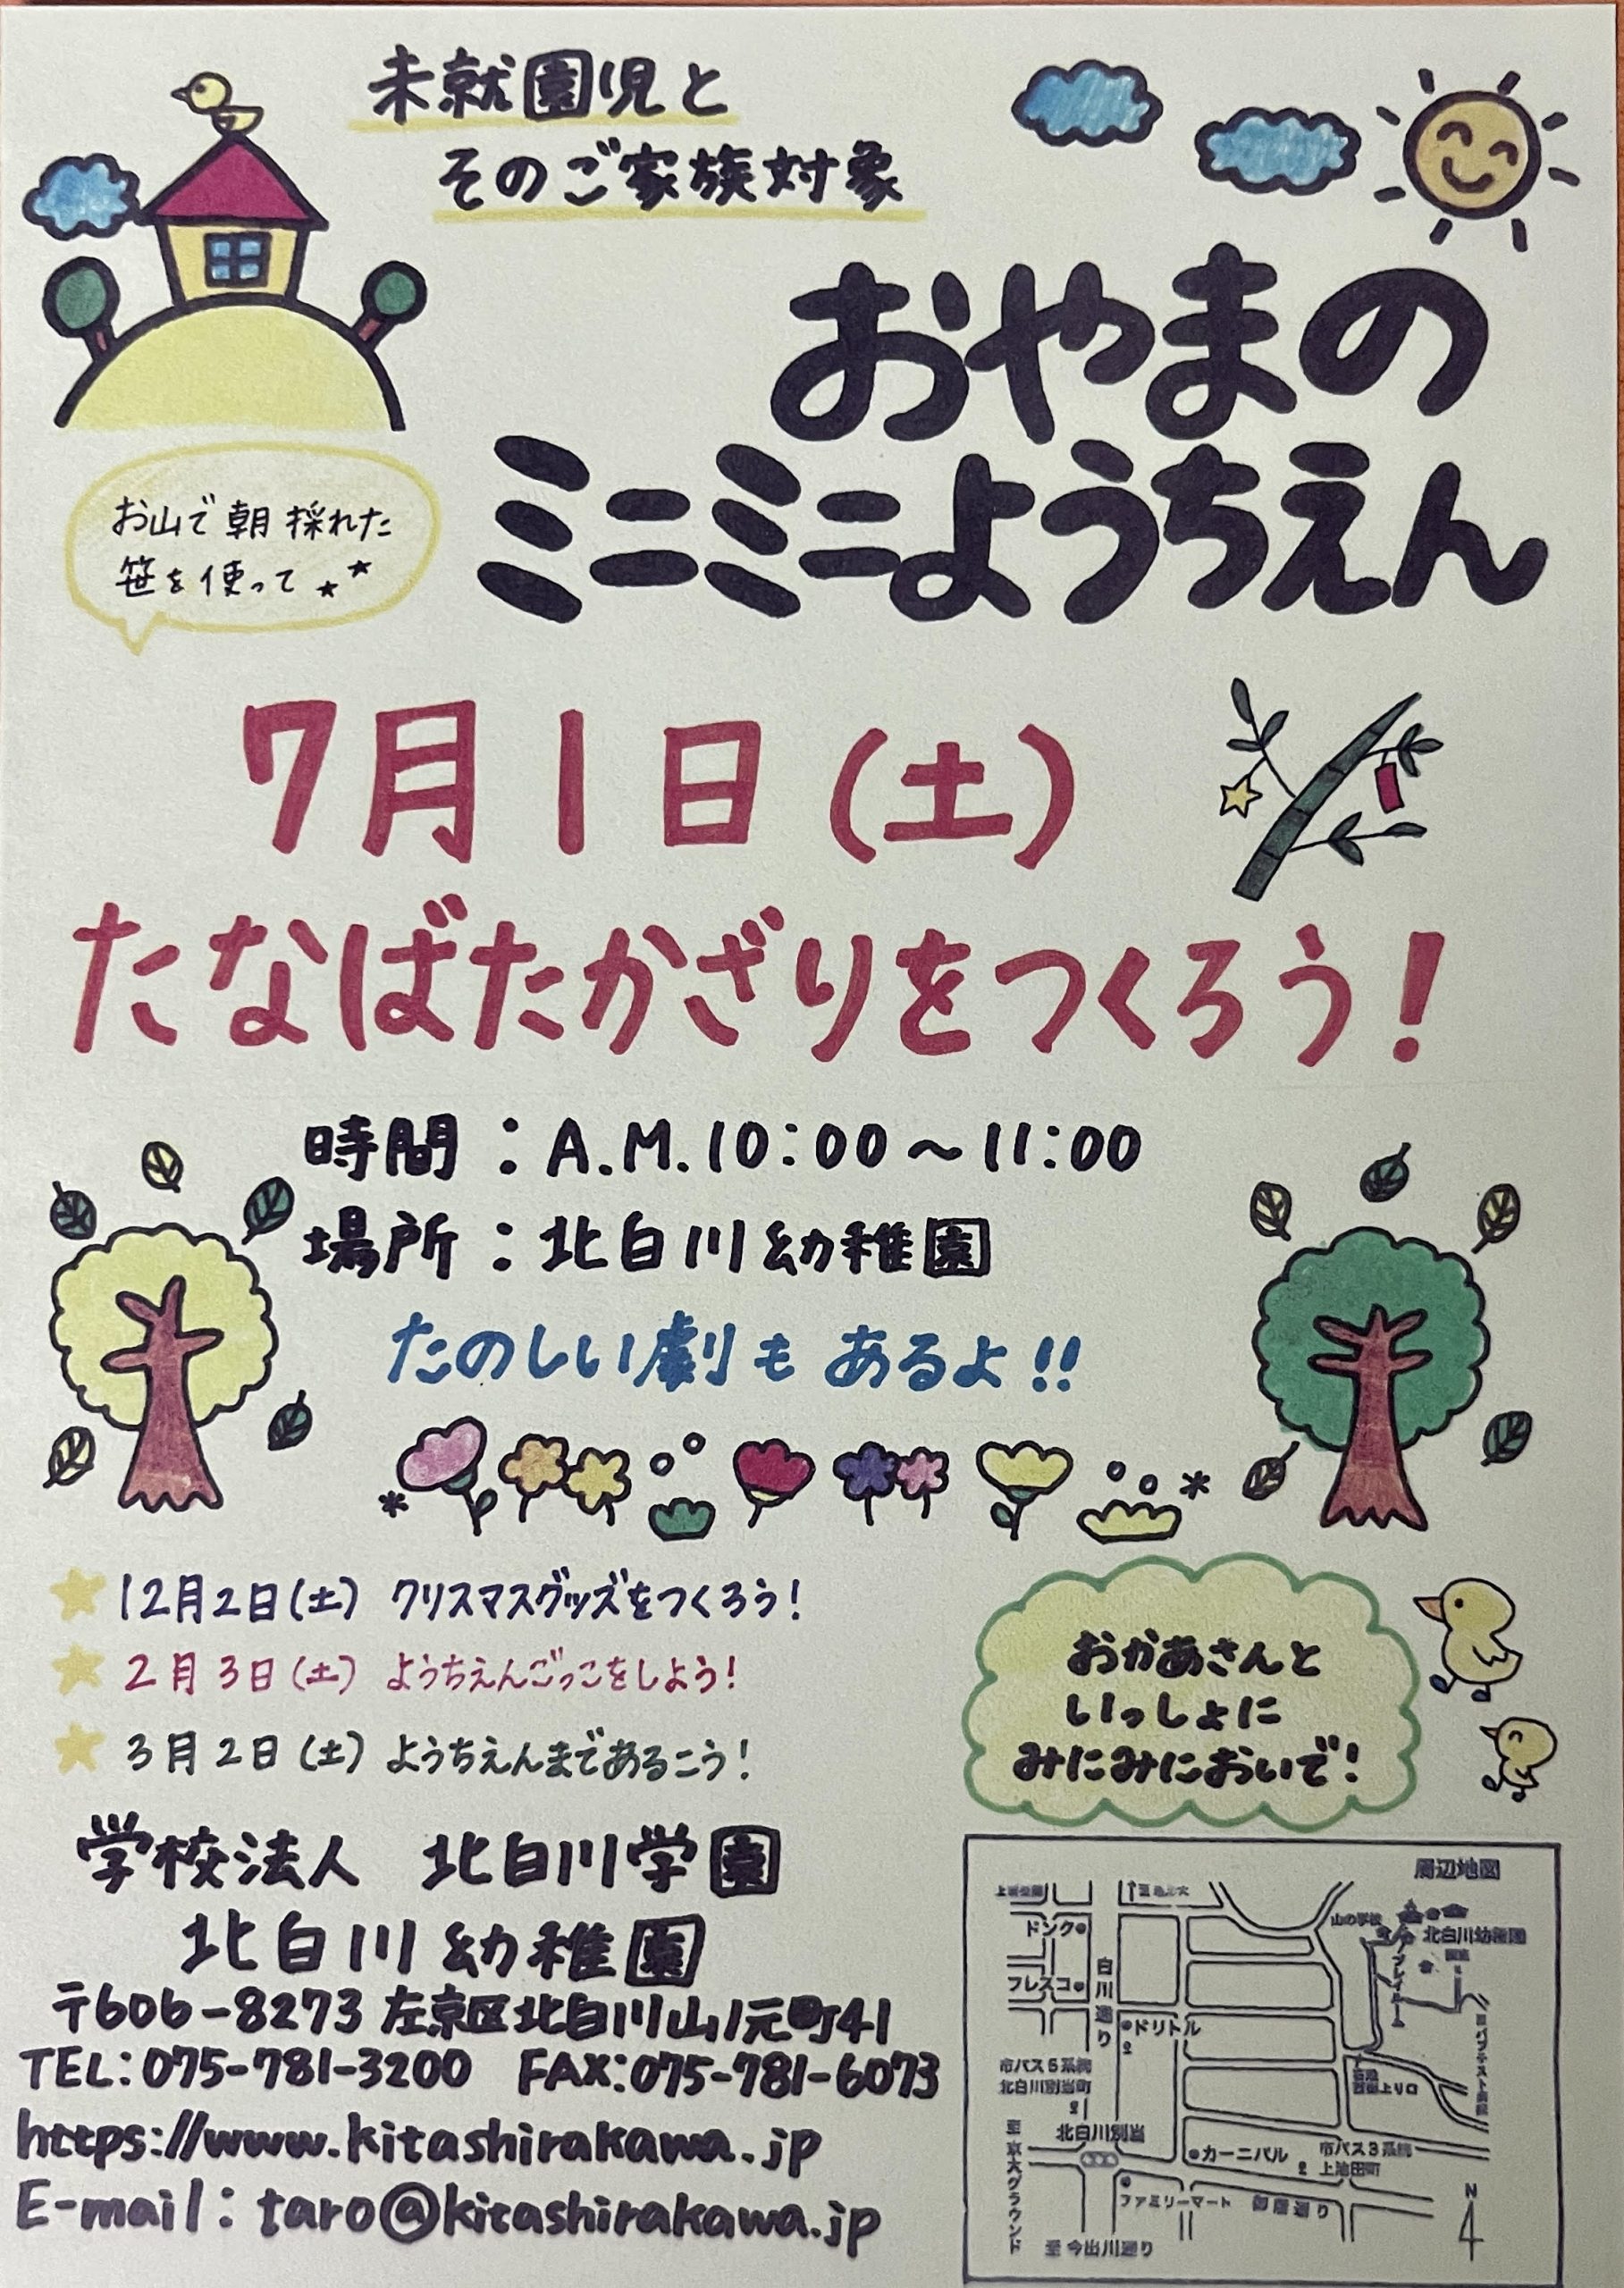 未就園児と
そのご家族対象
おやまの
ミニミニようちえん
お山で朝採れた
笹を使って
7月1日(土)
たなばたかざりをつくろう!
時間:A.M.10:00~11:00
場所:北白川幼稚園
たのしい劇もあるよ!!
12月2日(土) クリスマスグッズをつくろう!
2月3日(土) ようちえんごっこをしよう!
3月2日(土) ようちえんまであるこう!
おかあさんと
いっしょに
みにみにおいで!
学校法人 北白川学園
北白川幼稚園
〒606-8273 左京区北白川山ノ元町41
TEL:075-781-3200 FAX:075-781-6073
https://www.kitashirakawa.jp
E-mail:taro@kitashirakawa.jp
周辺地図
ドンク
山の学校
北白川幼稚園
フレスコ
白川通り
ドリトル
市バス5系統
北白川別当町
北白川別当
カーニバル
市バス3系統
上池田町
ファミリーマート
御蔭通り
至京大グラウンド
至今出川通り
N